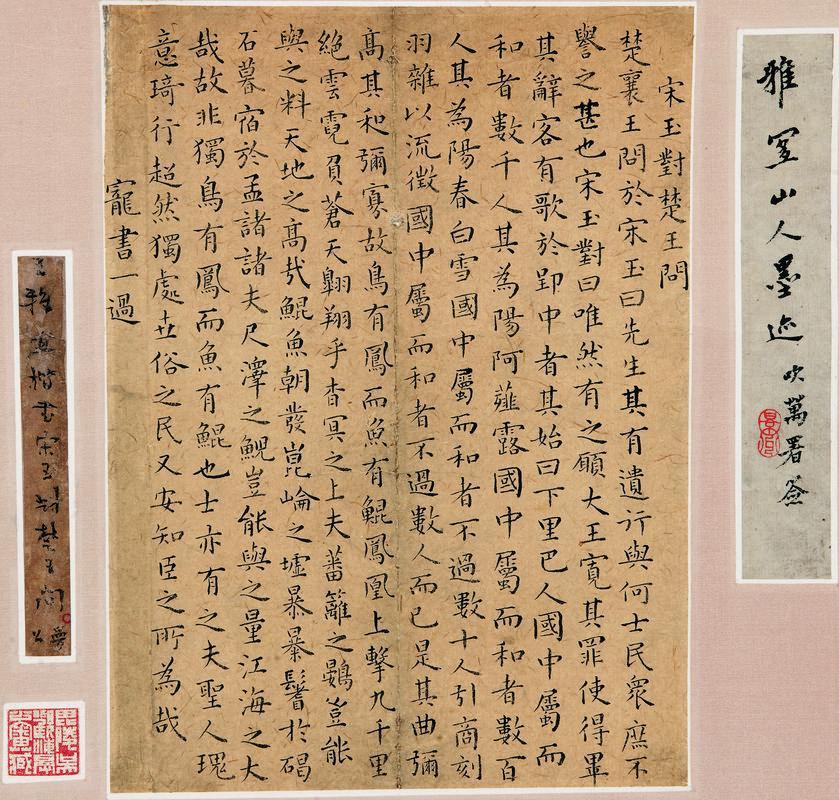 雅宜山人墨迹 吹萬署簽
宋玉對楚王問
楚襄王問於宋玉曰先生其有遺行與何士民衆庶不
譽之甚也宋玉對曰唯然有之願大王寬其罪使得畢
其辭客有歌於郢中者其始曰下里巴人國中屬而
和者數千人其為陽阿薤露國中屬而和者數百
人其為陽春白雪國中屬而和者不過數十人引商刻
羽雜以流徵國中屬而和者不過數人而已是其曲彌
高其和彌寡故鳥有鳳而魚有鯤鳳凰上擊九千里
絕雲霓負蒼天翱翔乎杳冥之上夫蕃籬之鷃豈能
與之料天地之高哉鯤魚朝發崑崙之墟暴暴鬐於碣
石暮宿於孟諸諸夫尺澤之鯢豈能與之量江海之大
哉故非獨鳥有鳳而魚有鯤也士亦有之夫聖人瑰
意琦行超然獨處世俗之民又安知臣之所為哉
寵書一過
王雅宜楷書宋玉對楚王問